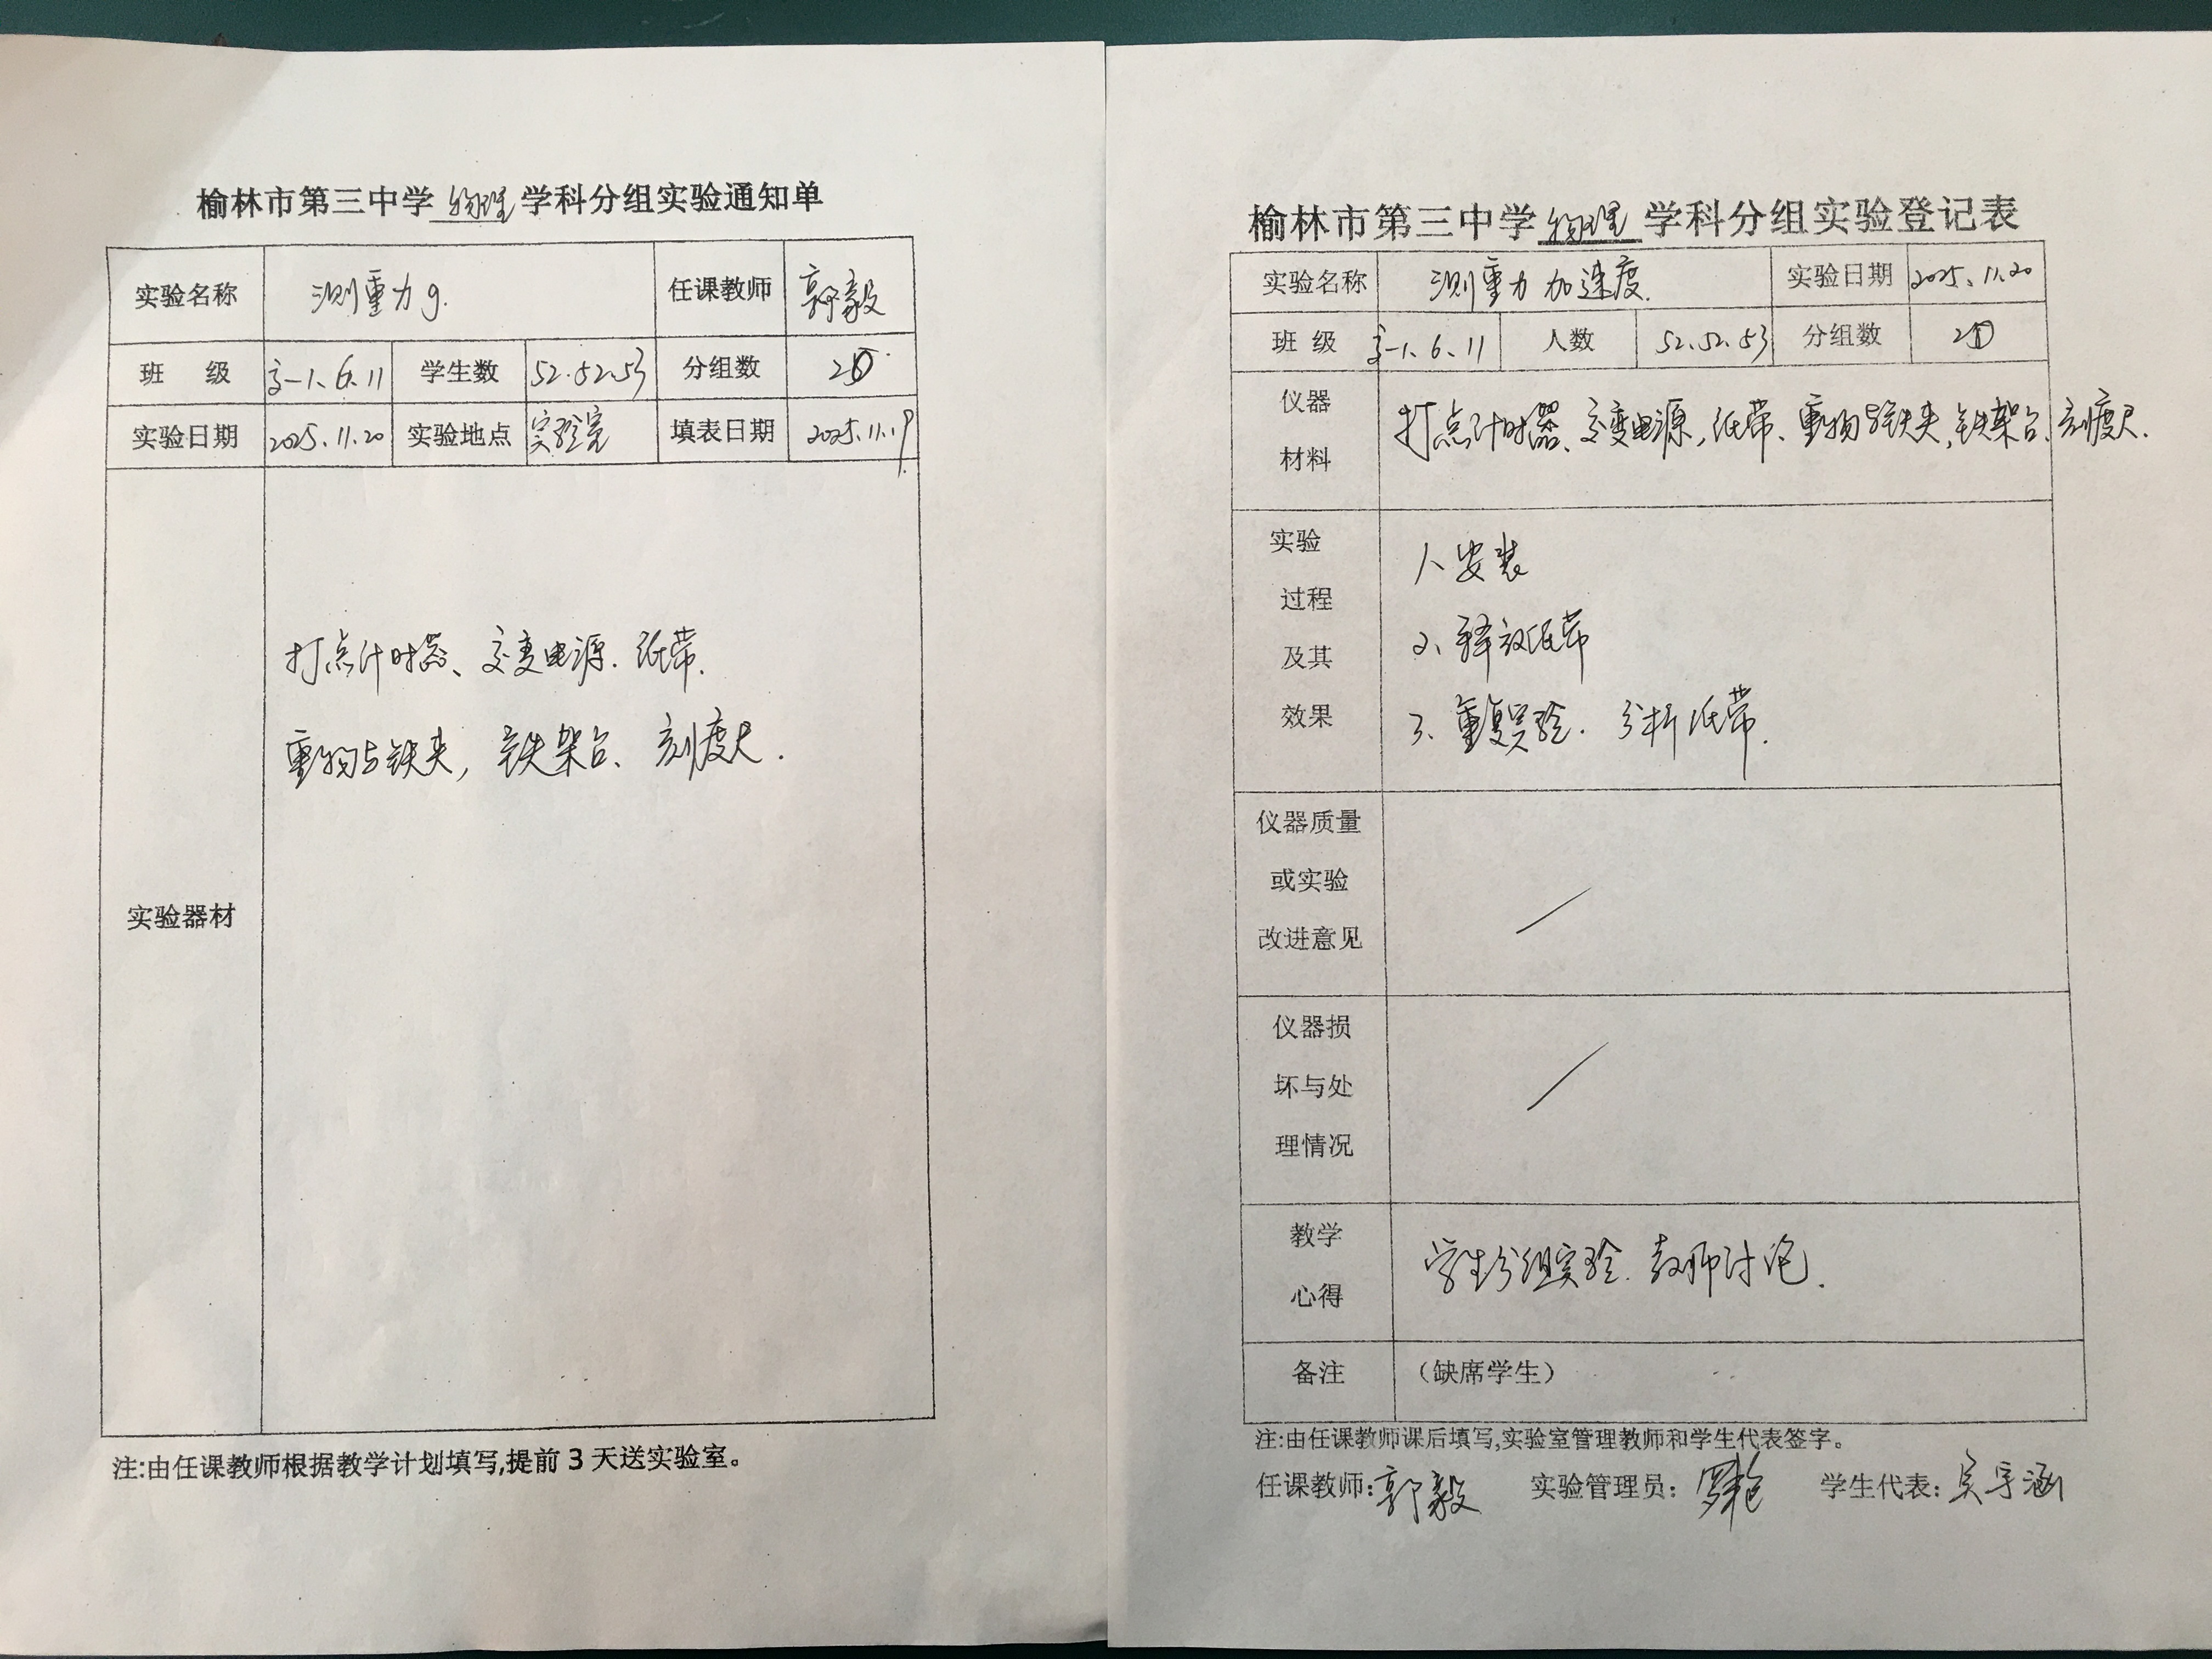 榆林市第三中学物理学科分组实验通知单
实验名称 测重力g. 任课教师 郭毅
班 级 高一1、6、11 学生数 52.52.53 分组数
实验日期 2025.11.20 实验地点 实验室 填表日期 2025.11.19.
实验器材
打点计时器、交变电源.纸带.
重物与铁夹,铁架台、刻度尺.
注:由任课教师根据教学计划填写,提前3天送实验室。
榆林市第三中学物理学科分组实验登记表
实验名称 测重力加速度. 实验日期 2025、11.20
班 级 高一1、6、11 人数 52.52.53 分组数
仪器
材料
打点计时器、交变电源,纸带、重物与铁夹,铁架台、刻度尺.
实验
过程
及其
效果
1、安装
2、释放纸带
3、重复实验.分析纸带.
仪器质量
或实验
改进意见
/
仪器损
坏与处
理情况
/
教学
心得
学生分组实验.教师讨论.
备注 (缺席学生)
注:由任课教师课后填写,实验室管理教师和学生代表签字。
任课教师:郭毅 实验管理员: 学生代表:吴宇涵